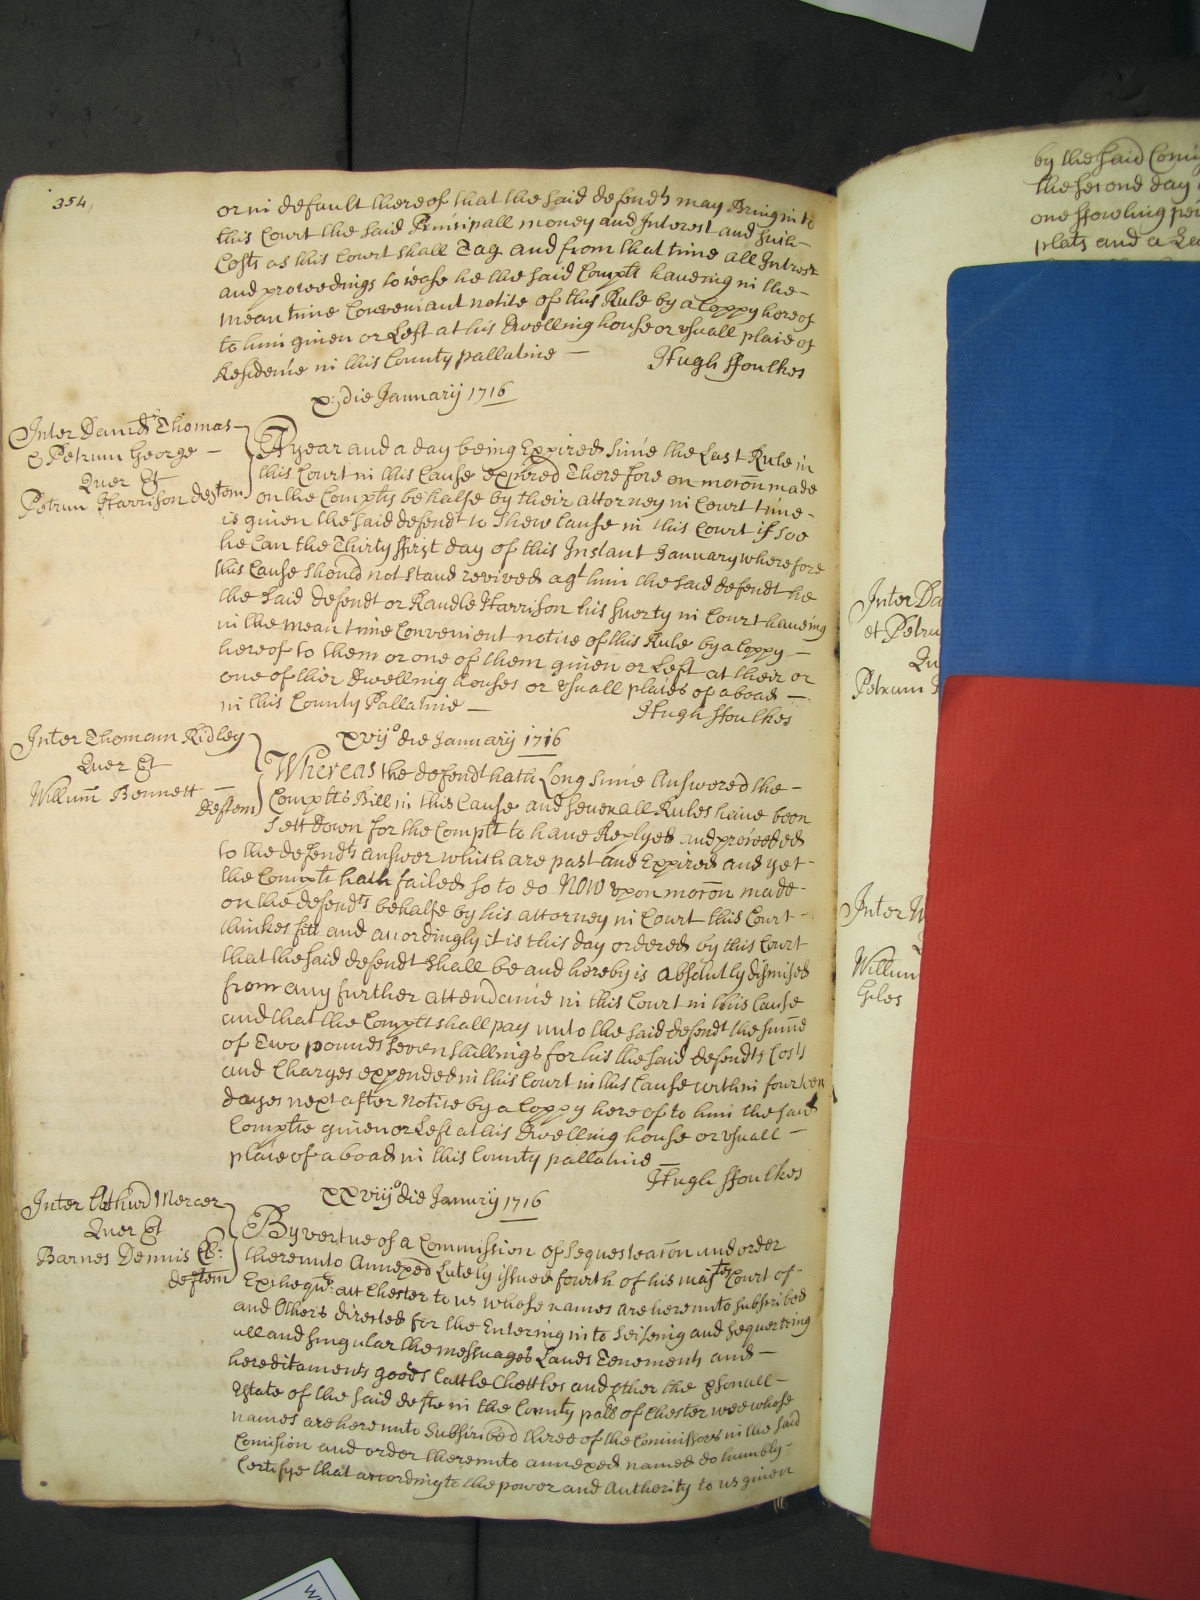 354,
or in default thereof that the said defendts may Bring in to
this Court the said Principall money and Interest and such
Costs as this Court shall Tax and from that time all Intrest
and proceedings to cease he the said Complt haueing in the
mean time Conveniant notice of this Rule by a Coppy hereof
to him giuen or Left at his dwelling house or vsuall place of
Residence in this County pallatine
Hugh Ffoulkes
x: die January 1716
Inter David Thomas
& Petrum George
Quer Et
Petrum Harrison deftem
A year and a day being Expired since the Last Rule in
this Court in this Cause expired Therefore on moc̄on made
on the Complts behalfe by their attorney in Court time
is giuen the said defendt to shew Cause in this Court if soe
he Can the Thirty ffirst day of this Instant January wherefore
this Cause should not stand revived agt him the said defendt he
the said defendt or Randle Harrison his suerty in Court haueing
in the mean time Convenient notice of this Rule by a Coppy
hereof to them or one of them giuen or Left at their or
one of thier dwelling houses or vsuall places of aboad
in this County Pallatine
Hugh Ffoulkes
xvijo die January 1716
Inter Thomam Ridley
Quer Et
Willum̄ Bennett
deftem
Whereas the defendt hath Long since Answered the
Complts Bill in this Cause and seuerall Rules haue been
sett down for the Complt to haue Replyed and proceeded
to the defendts answer which are past and Expired and yet
the Complt hath failed so to do Now vpon moc̄on made
on the defendts behalfe by his attorney in Court this Court
thinkes fitt and accordingly it is this day ordered by this Court
that the said defendt shall be and hereby is absolutly dismised
from any further attendance in this Court in this Cause
and that the Complt shall pay unto the said defendt the sum̄e
of Two pounds seven shillings for his the said defendts Costs
and Charges expended in this Court in this Cause within fourteen
dayes next after notice by a Coppy hereof to him the said
Complte giuen or Left at his dwelling house or vsuall
place of aboad in this County pallatine
Hugh Ffoulkes
xxviijo die Janury 1716
Inter Mercer
Quer Et
Barnes Dennis
deftem
By vertue of a Commission of Sequestrac̄on and order
thereunto Annexed Lately issued fourth of his matys Court of
Excheqr: att Chester to us whose names are hereunto subscribed
and Others directed for the Entering into Seiseing and Sequestring
all and singular the messuages Lands Tenements and
hereditaments goods Cattle Chattles and other the psonall
Estate of the said defte in the County palle of Chester wee whose
names are hereunto subscribed three of the Comissores in the said
Comision and order thereunto annexed named do humbly
Certifye that according to the power and Authority to us giuen
by the said Comi
the second day
one ffowling pei
plats and a
Inter Da
et Petru
Qu
Petrum
Inter W
Willum
Giles